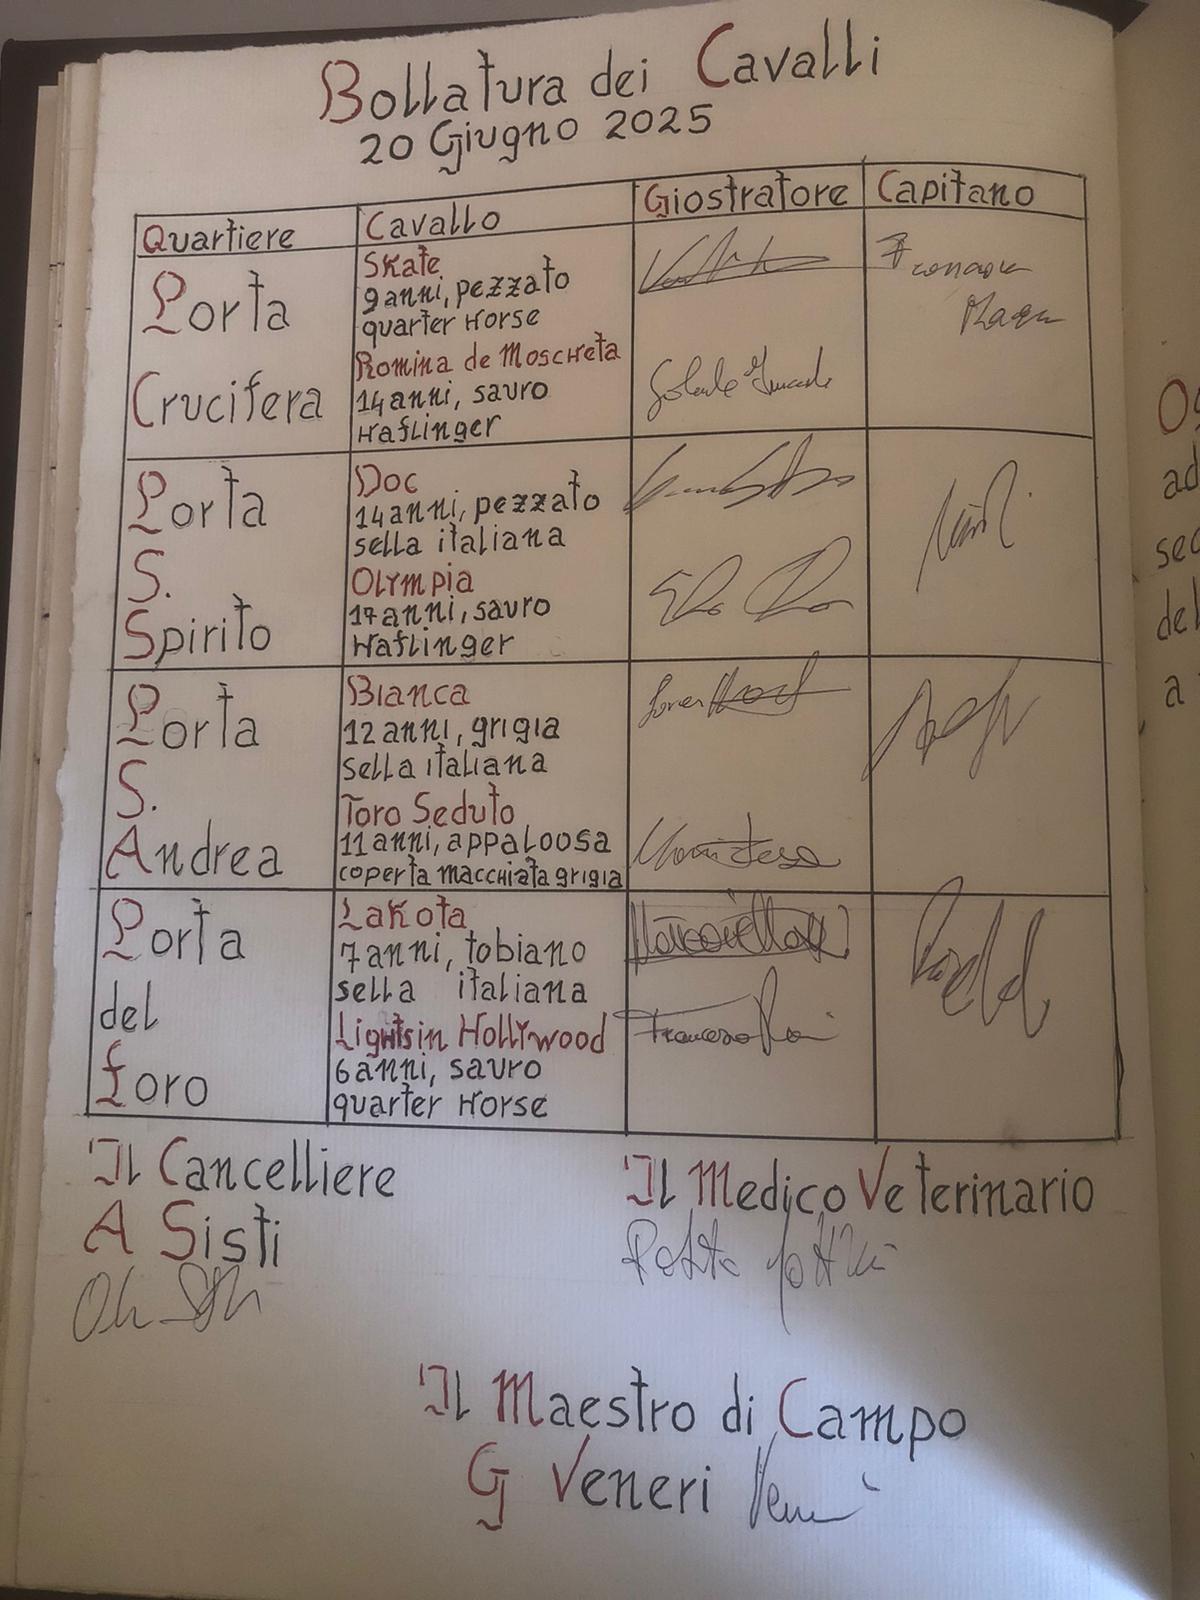 Bollatura dei Cavalli
20 Giugno 2025
Quartiere
Cavallo
Giostratore
Capitano
Porta
Crucifera
Skate
9 anni, pezzato
quarter Horse
Romina de Moscheta
14 anni, sauro
Haflinger
Porta
S.
Spirito
Doc
14 anni, pezzato
sella italiana
Olympia
17 anni, sauro
Haflinger
Porta
S.
Andrea
Bianca
12 anni, grigia
sella italiana
Toro Seduto
11 anni, appaloosa
coperta macchiata grigia
Porta
del
Foro
Lakota
7 anni, tobiano
sella italiana
Lights in Hollywood
Francesco
6 anni, sauro
quarter Horse
Il Cancelliere
A Sisti
Il Medico Veterinario
Il Maestro di Campo
G Veneri
O
ad
del
a